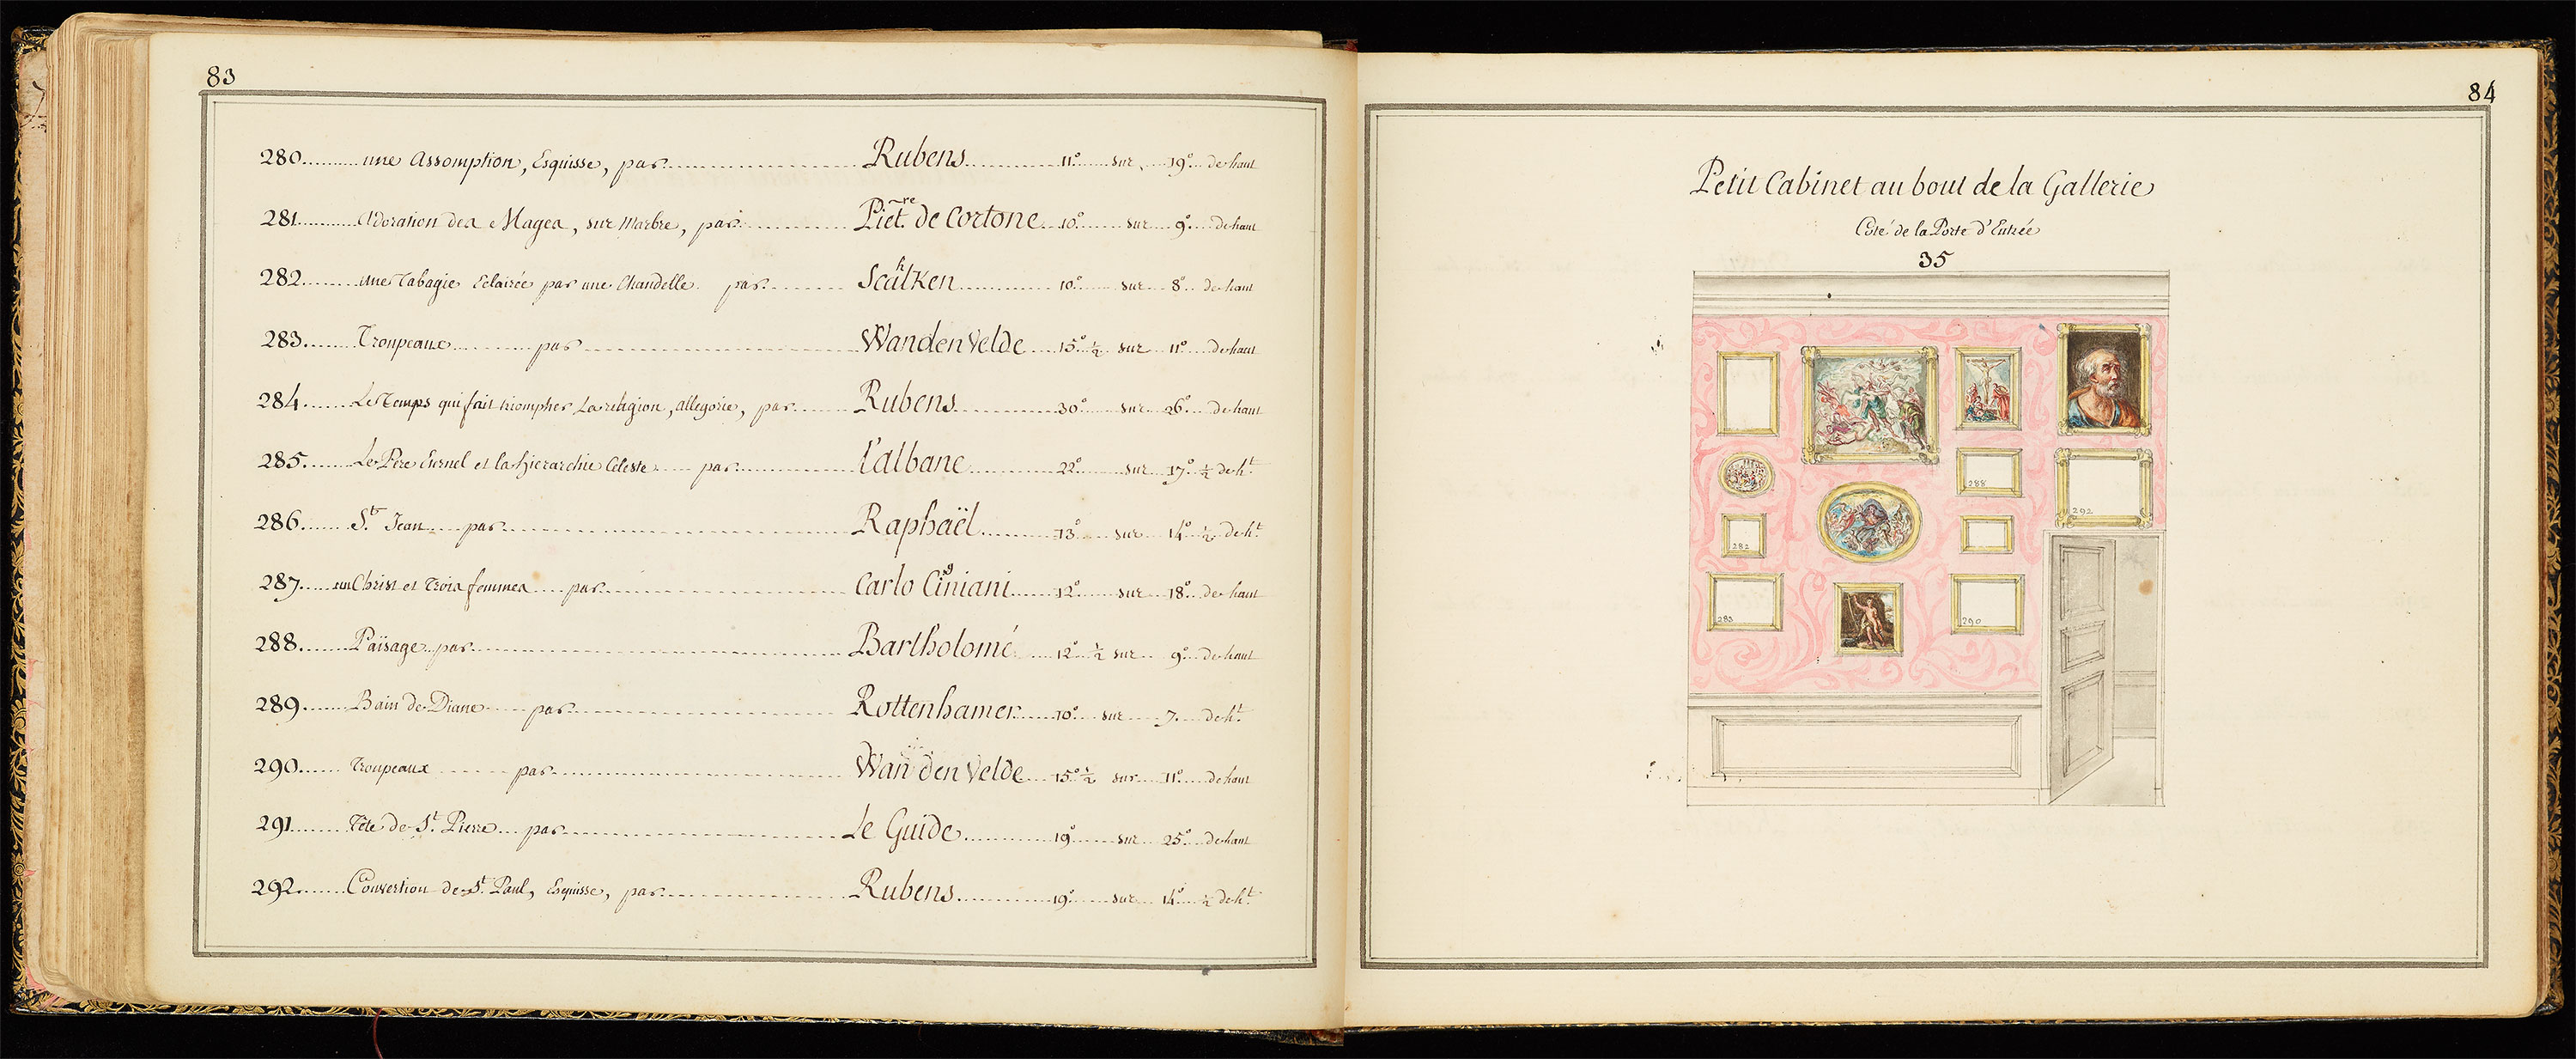 83
280 une Assomption, Esquisse, par Rubens 11° sur 19° de haut
281 Adoration des Mages, sur Marbre, par Piet.re de Cortone 10° sur 9° de haut
282 une Tabagie Eclairée par une Chandelle par Scalken 10° sur 8° de haut
283 Troupeaux par Wandenvelde 15° ½ sur 11° de haut
284 Le Temps qui fait triompher La religion, allegorie, par Rubens 30° sur 26° de haut
285 Le Pere Eternel et la hierarchie Celeste par l'albane 22° sur 17° ½ de ht
286 St. Jean par Raphaël 13° sur 14° ½ de ht
287 un Christ et Trois femmes par Carlo Cigniani 12° sur 18° de haut
288 Païsage par Bartholomé 12° ½ sur 9° de haut
289 Bain de Diane par Rottenhamer 10° sur 7 de ht
290 Troupeaux par Wan den Velde 15° ½ sur 11° de haut
291 Tête de St. Pierre par Le Guide 19° sur 25° de haut
292 Convertion de St. Paul, Esquisse, par Rubens 19° sur 14° ½ de ht
84
Petit Cabinet au bout de la Gallerie
Coté de la Porte d'Entrée
35
288
292
282
283
290